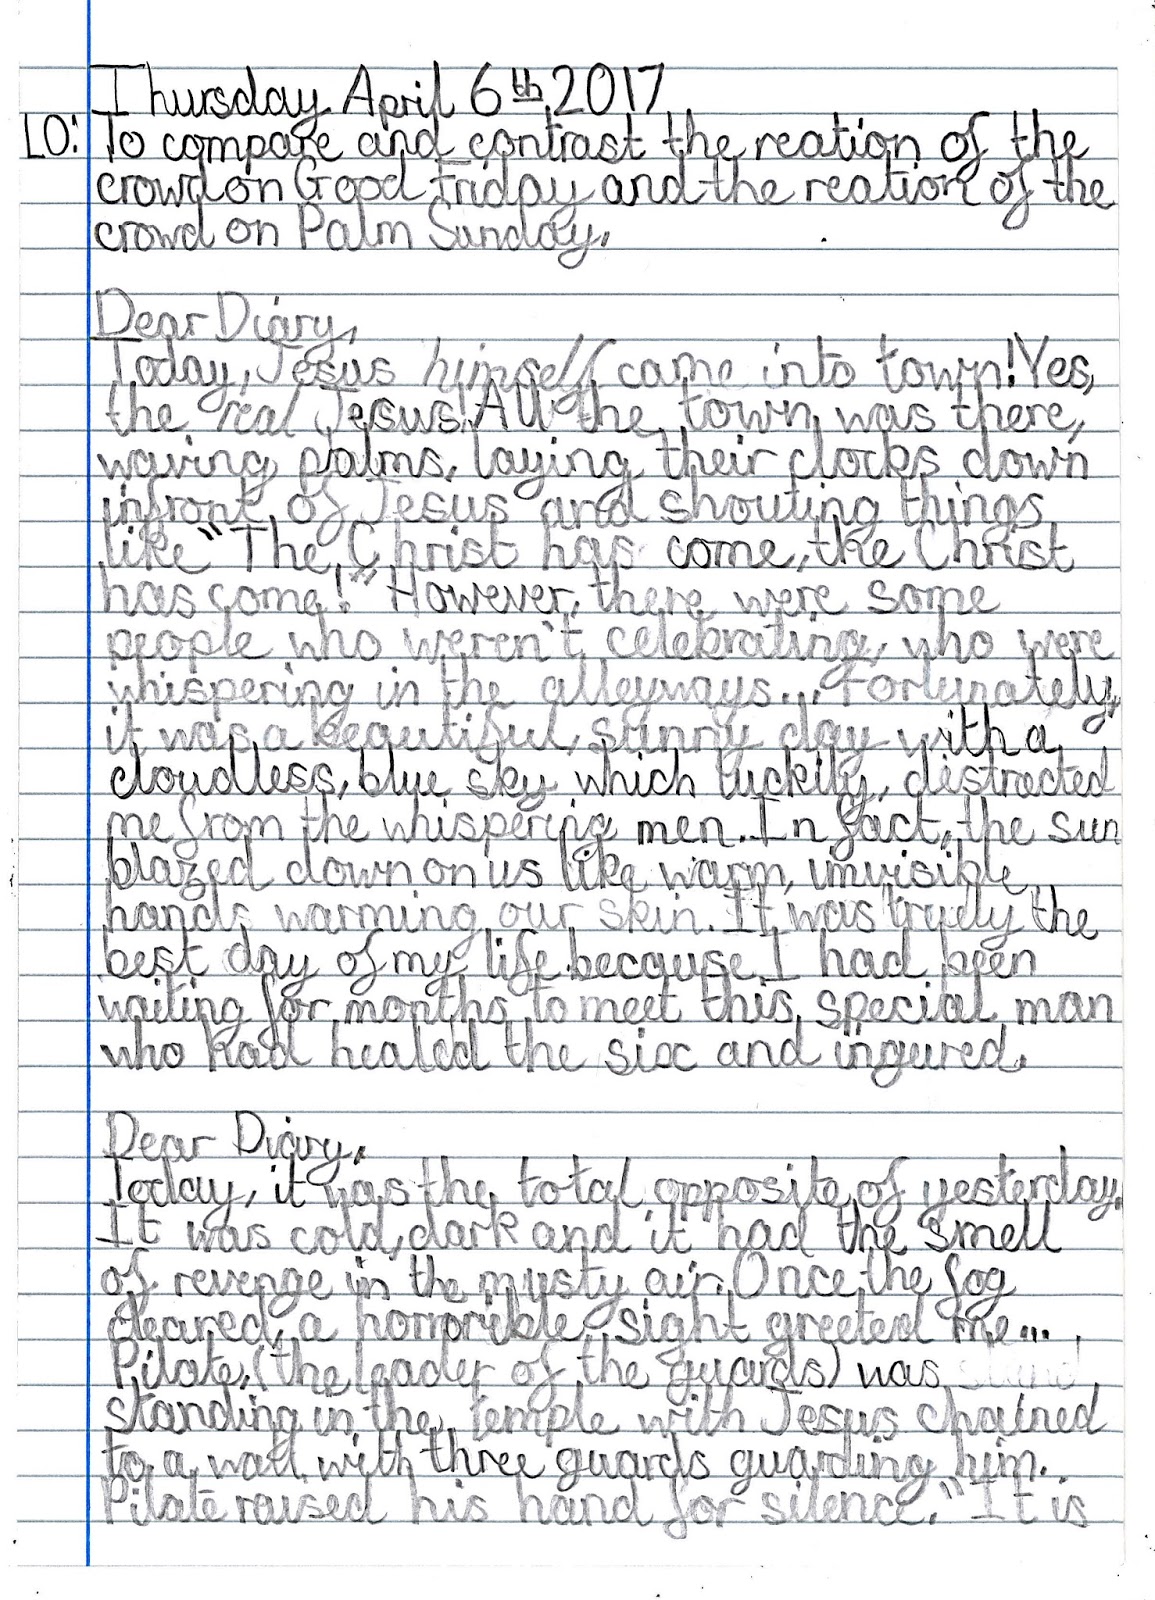 Thursday April 6th 2017
LO: To compare and contrast the reation of the
crowd on Good Friday and the reation of the
crowd on Palm Sunday.
Dear Diary,
Today, Jesus himself came into town! Yes,
the real Jesus! All the town was there,
waving palms, laying their clocks down
infront of Jesus and shouting things
like "The Christ has come, the Christ
has come!" However, there were some
people who weren't celebrating, who were
whispering in the alleyways... Fortunately,
it was a beautiful, sunny day with a
cloudless, blue sky which luckily, distracted
me from the whispering men. In fact, the sun
blazed down on us like warm, invisible
hands warming our skin. It was truely the
best day of my life because I had been
waiting for months to meet this special man
who had healed the sick and ingured.
Dear Diary,
Today, it was the total opposite of yesterday.
It was cold, dark and it had the smell
of revenge in the musty air. Once the fog
cleared, a horrible sight greeted me...
Pilate, (the leader of the guards) was
standing in the temple with Jesus chained
to a wall with three guards guarding him.
Pilate raised his hand for silence. "It is